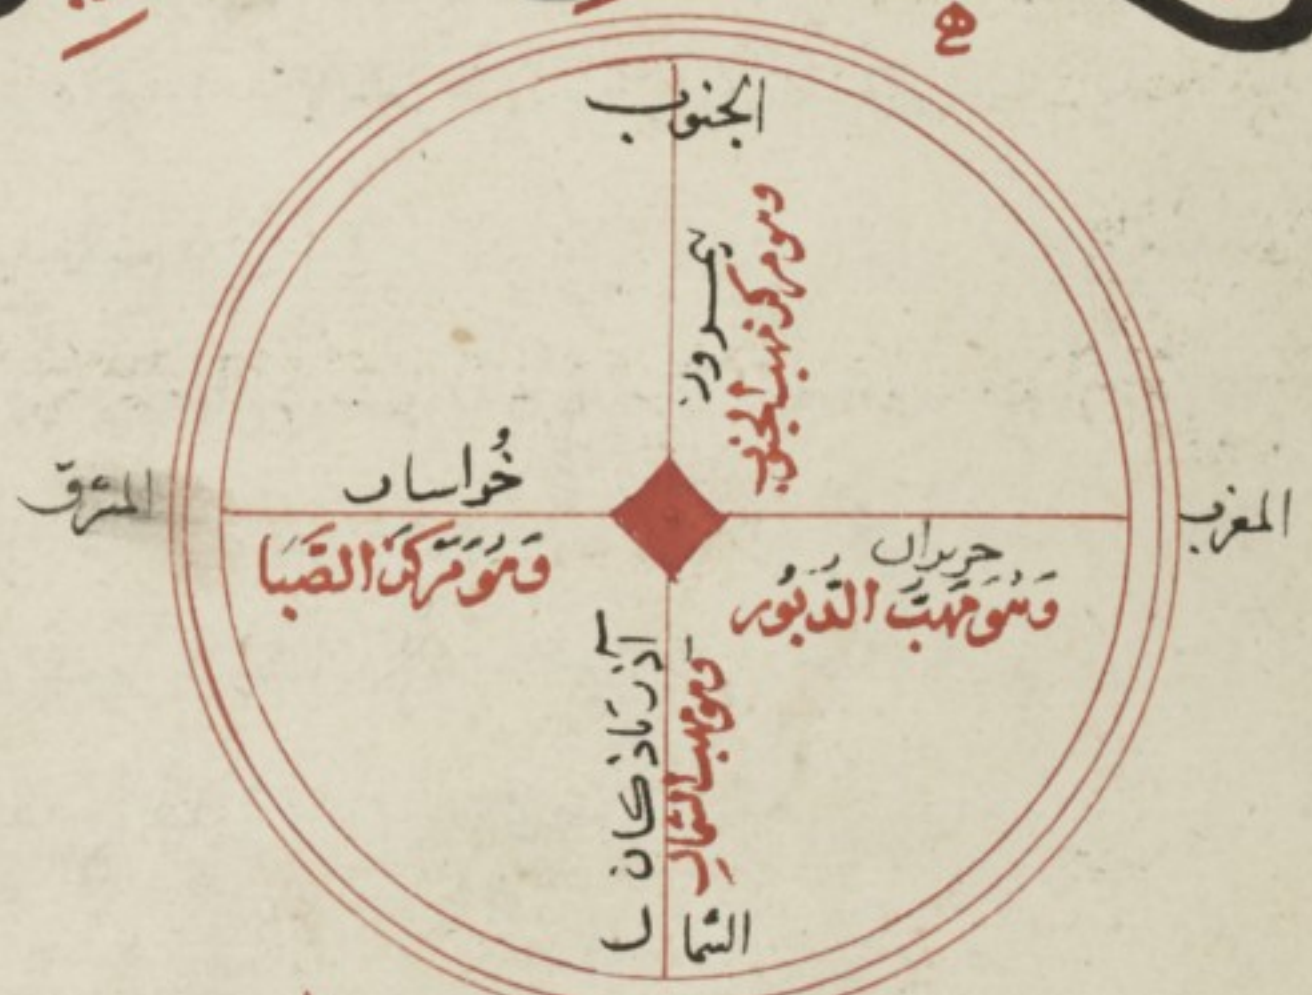 الجنوب
وهو مركز مهب الجنوب
المشرق
خُراسان
وَهُوَ مَركَز الصَّبَا
المغرب
وَهُوَ مَهَبّ الدَّبُور
آذرباذكان
وهو مهب الشمال
الشمال